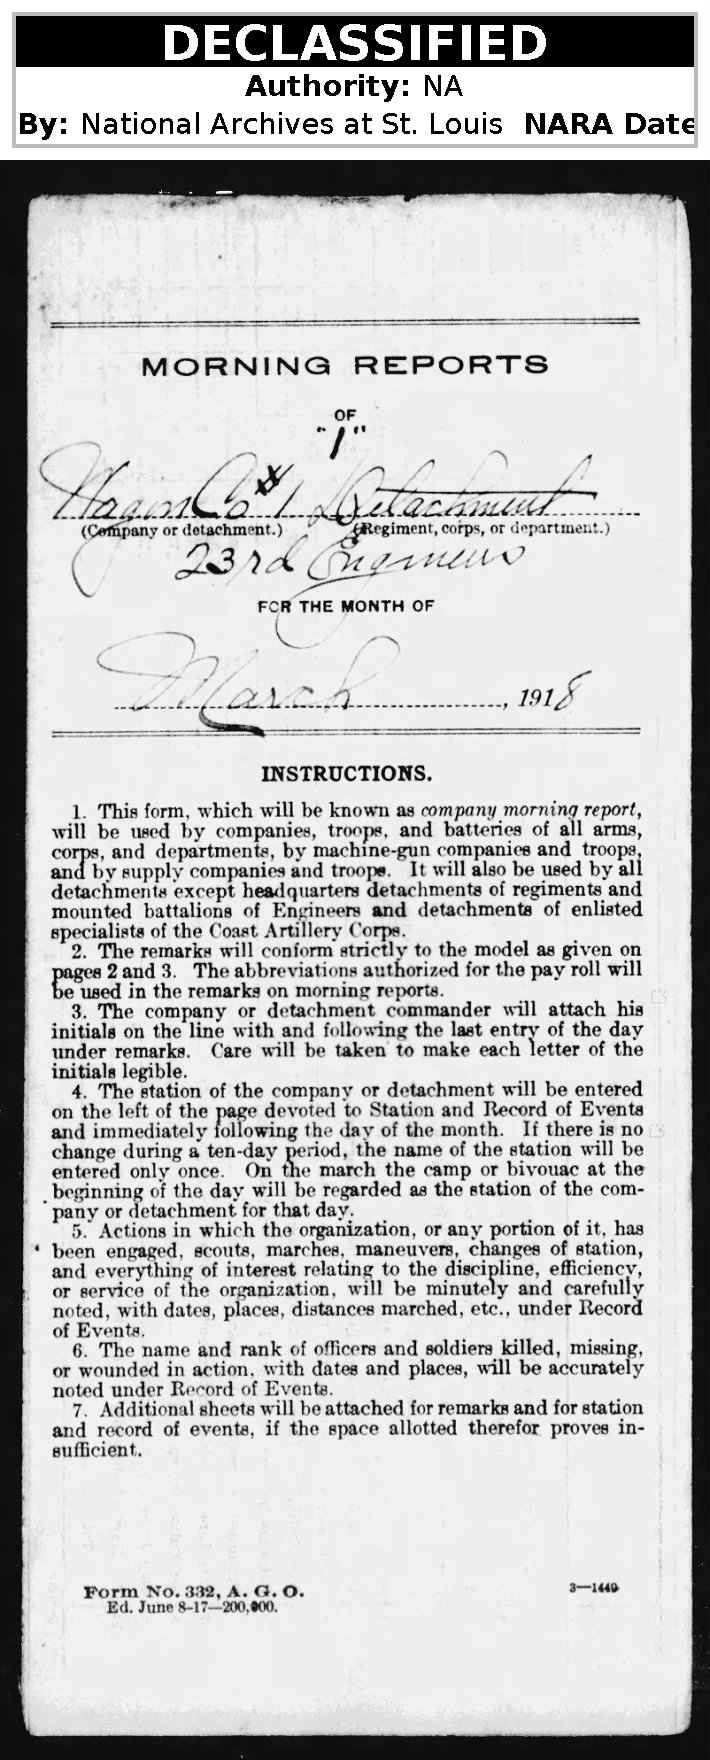 DECLASSIFIED
Authority: NA
By: National Archives at St. Louis NARA Date
MORNING REPORTS
OF
"1"
Wagon Co #1 Detachment
(Company or detachment.) (Regiment, corps, or department.)
23rd Engineers
FOR THE MONTH OF
March, 1918
INSTRUCTIONS.
1. This form, which will be known as company morning report,
will be used by companies, troops, and batteries of all arms,
corps, and departments, by machine-gun companies and troops,
and by supply companies and troops. It will also be used by all
detachments except headquarters detachments of regiments and
mounted battalions of Engineers and detachments of enlisted
specialists of the Coast Artillery Corps.
2. The remarks will conform strictly to the model as given on
pages 2 and 3. The abbreviations authorized for the pay roll will
be used in the remarks on morning reports.
3. The company or detachment commander will attach his
initials on the line with and following the last entry of the day
under remarks. Care will be taken to make each letter of the
initials legible.
4. The station of the company or detachment will be entered
on the left of the page devoted to Station and Record of Events
and immediately following the day of the month. If there is no
change during a ten-day period, the name of the station will be
entered only once. On the march the camp or bivouac at the
beginning of the day will be regarded as the station of the com-
pany or detachment for that day.
5. Actions in which the organization, or any portion of it, has
been engaged, scouts, marches, maneuvers, changes of station,
and everything of interest relating to the discipline, efficiency,
or service of the organization, will be minutely and carefully
noted, with dates, places, distances marched, etc., under Record
of Events.
6. The name and rank of officers and soldiers killed, missing,
or wounded in action, with dates and places, will be accurately
noted under Record of Events.
7. Additional sheets will be attached for remarks and for station
and record of events, if the space allotted therefor proves in-
sufficient.
Form No. 332, A. G. O.
Ed. June 8-17—200,000.
3—1449